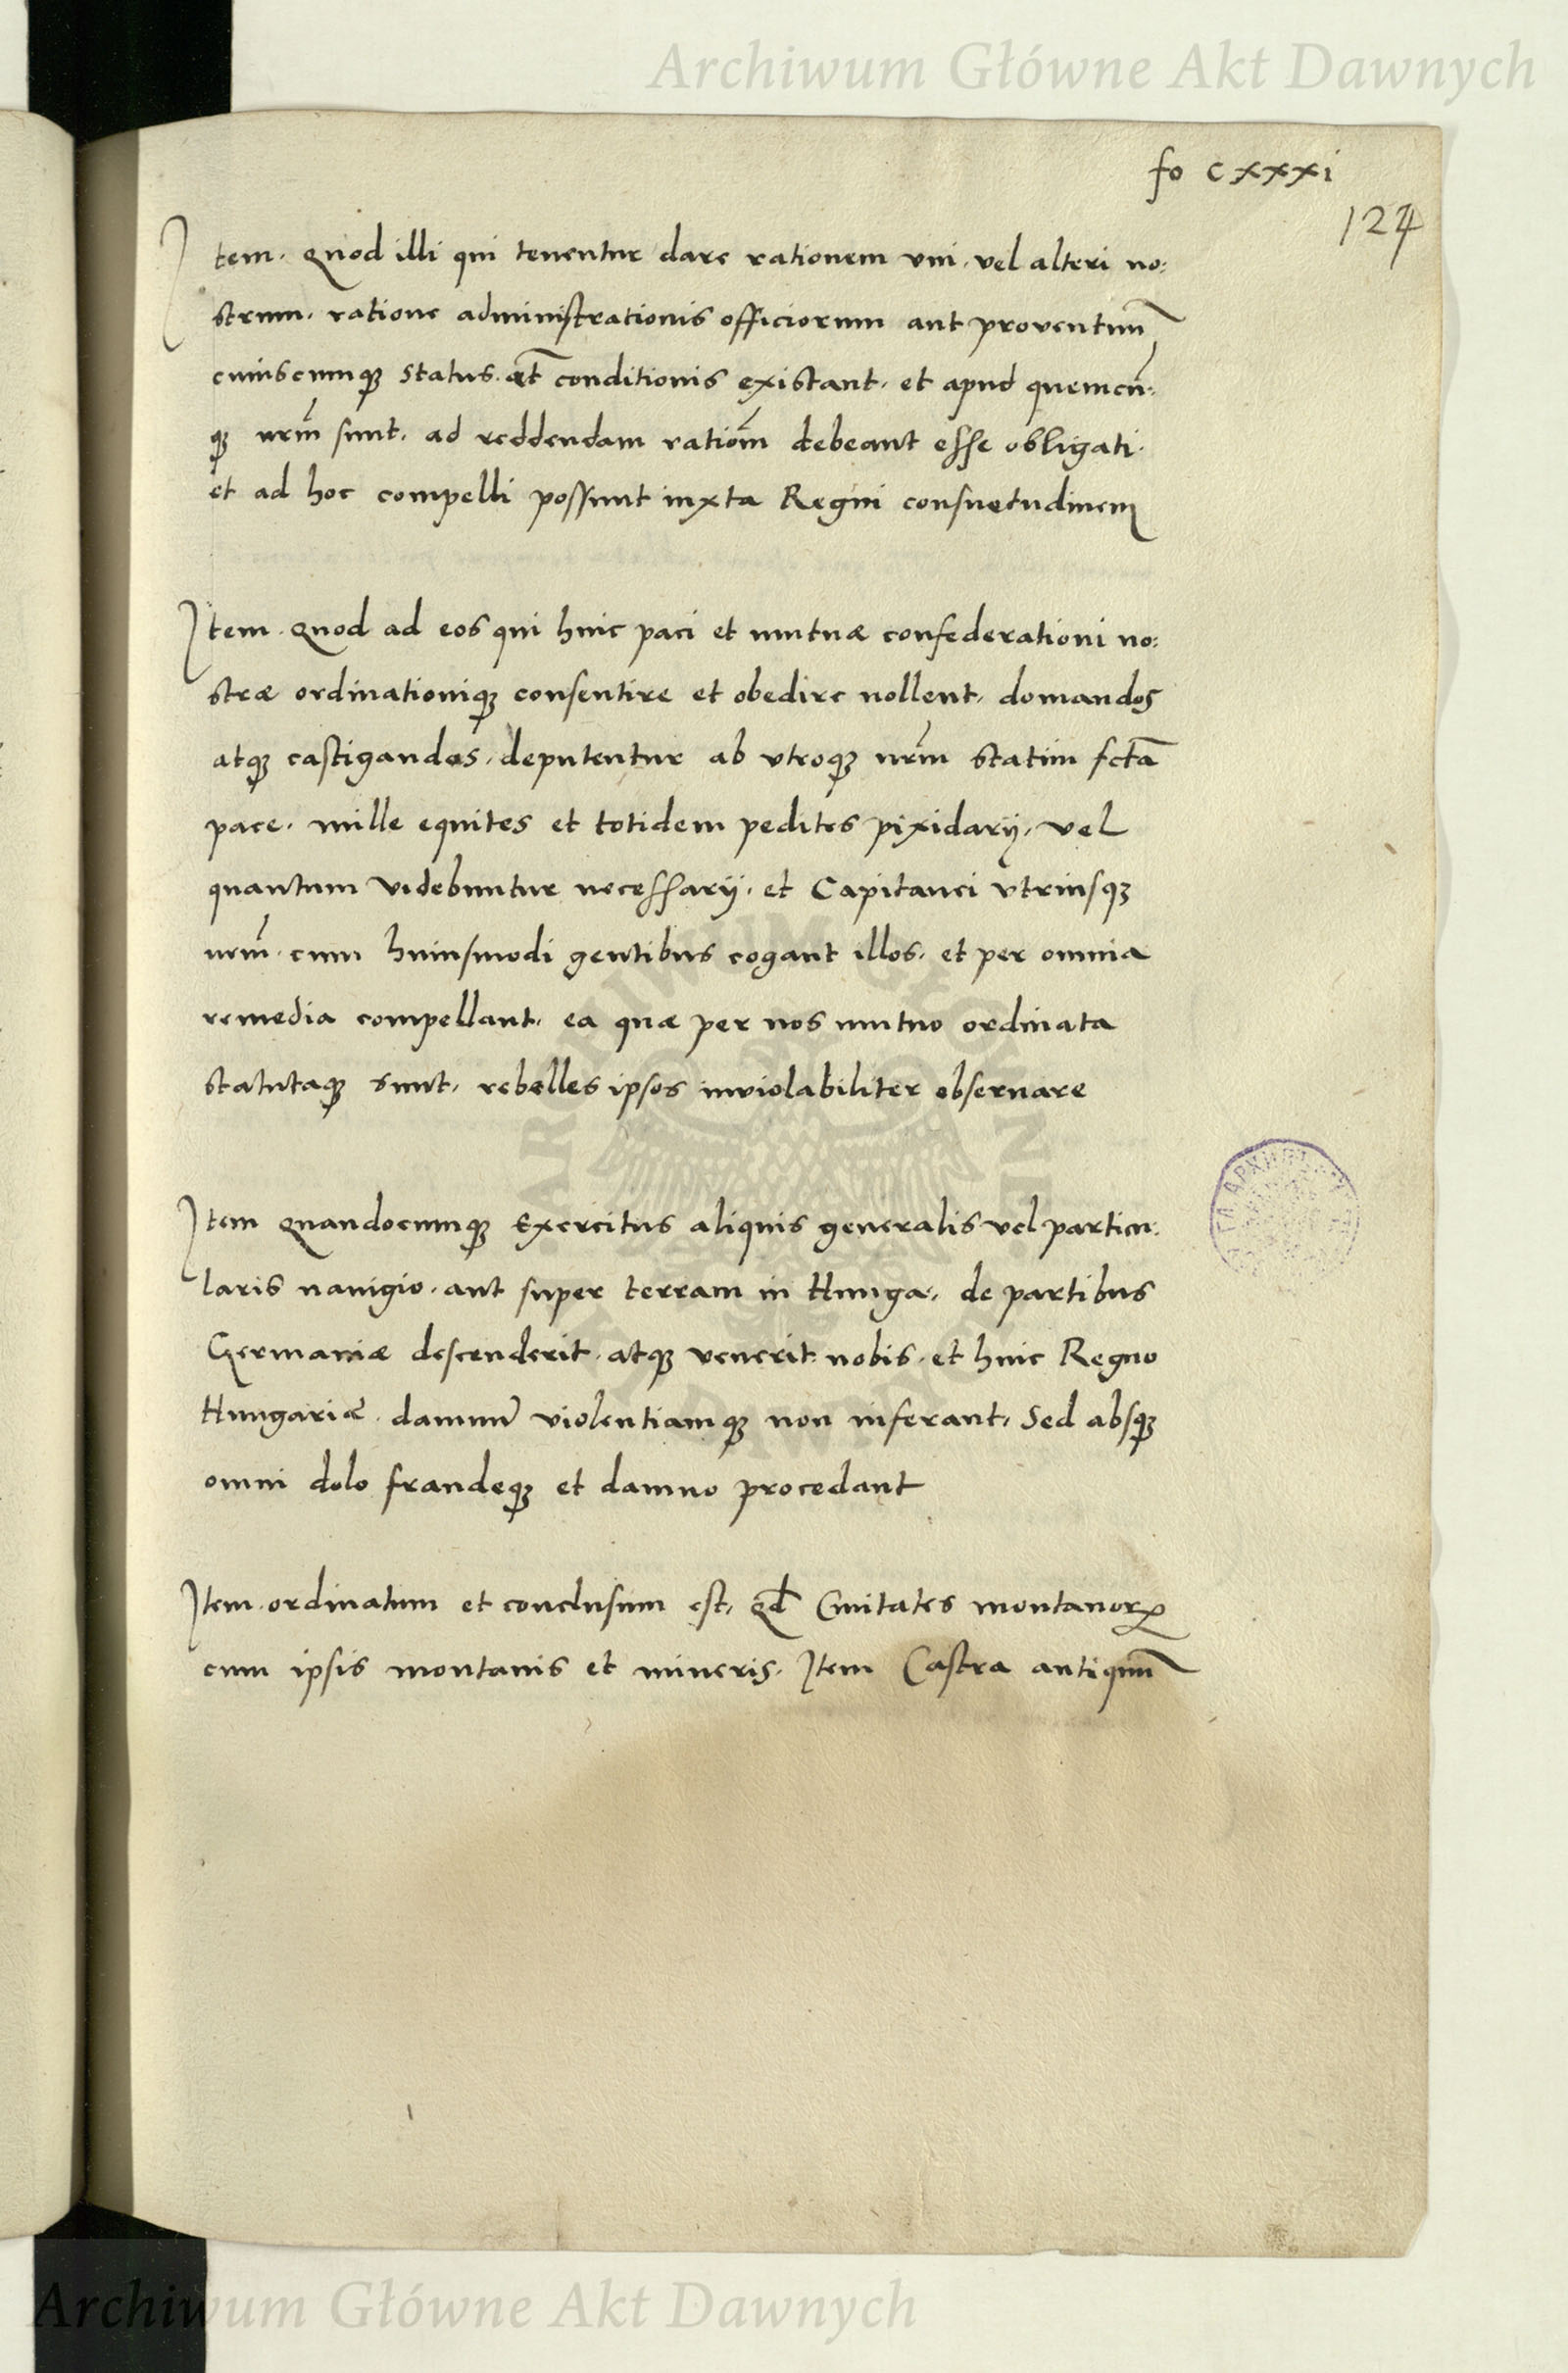 Archiwum Główne Akt Dawnych
fo cxxxi
124
Item. Quod illi qui tenentur dare rationem vni. vel alteri no:
strum. ratione administrationis officiorum aut proventuū
cuiuscumqꝫ status. aūt conditionis existant. et apud quemcū:
qꝫ nrm̄ sunt. ad reddendam ratiōm debeant esse obligati.
et ad hoc compelli possunt iuxta Regni consuetudinem
Item. Quod ad eos qui huic paci et mutuæ confederationi no:
stræ ordinationiqꝫ consentire et obedire nollent. domandos
atqꝫ castigandos. deputentur ab vtroqꝫ nrm̄ statim fctā
pace. mille equites et totidem pedites pixidarij. vel
quantum videbuntur necessarij. et Capitanei vtriusqꝫ
nrm̄. cum huiusmodi gentibus cogant illos. et per omnia
remedia compellant. ea quæ per nos mutuo ordinata
statutaqꝫ sunt. rebelles ipsos inviolabiliter obseruare
Item Quandocumqꝫ Exercitus aliquis generalis vel particu:
laris nauigio. aut super terram in Hunga. de partibus
Germaniæ descenderit. atqꝫ venerit. nobis. et huic Regno
Hungariæ. damnū violentiamqꝫ non inferant. Sed absqꝫ
omni dolo fraudeqꝫ et damno procedant
Item. ordinatum et conclusum est. qd̄ Ciuitates montanorꝝ
cum ipsis montanis et mineris. Item Castra antiquū
Archiwum Główne Akt Dawnych